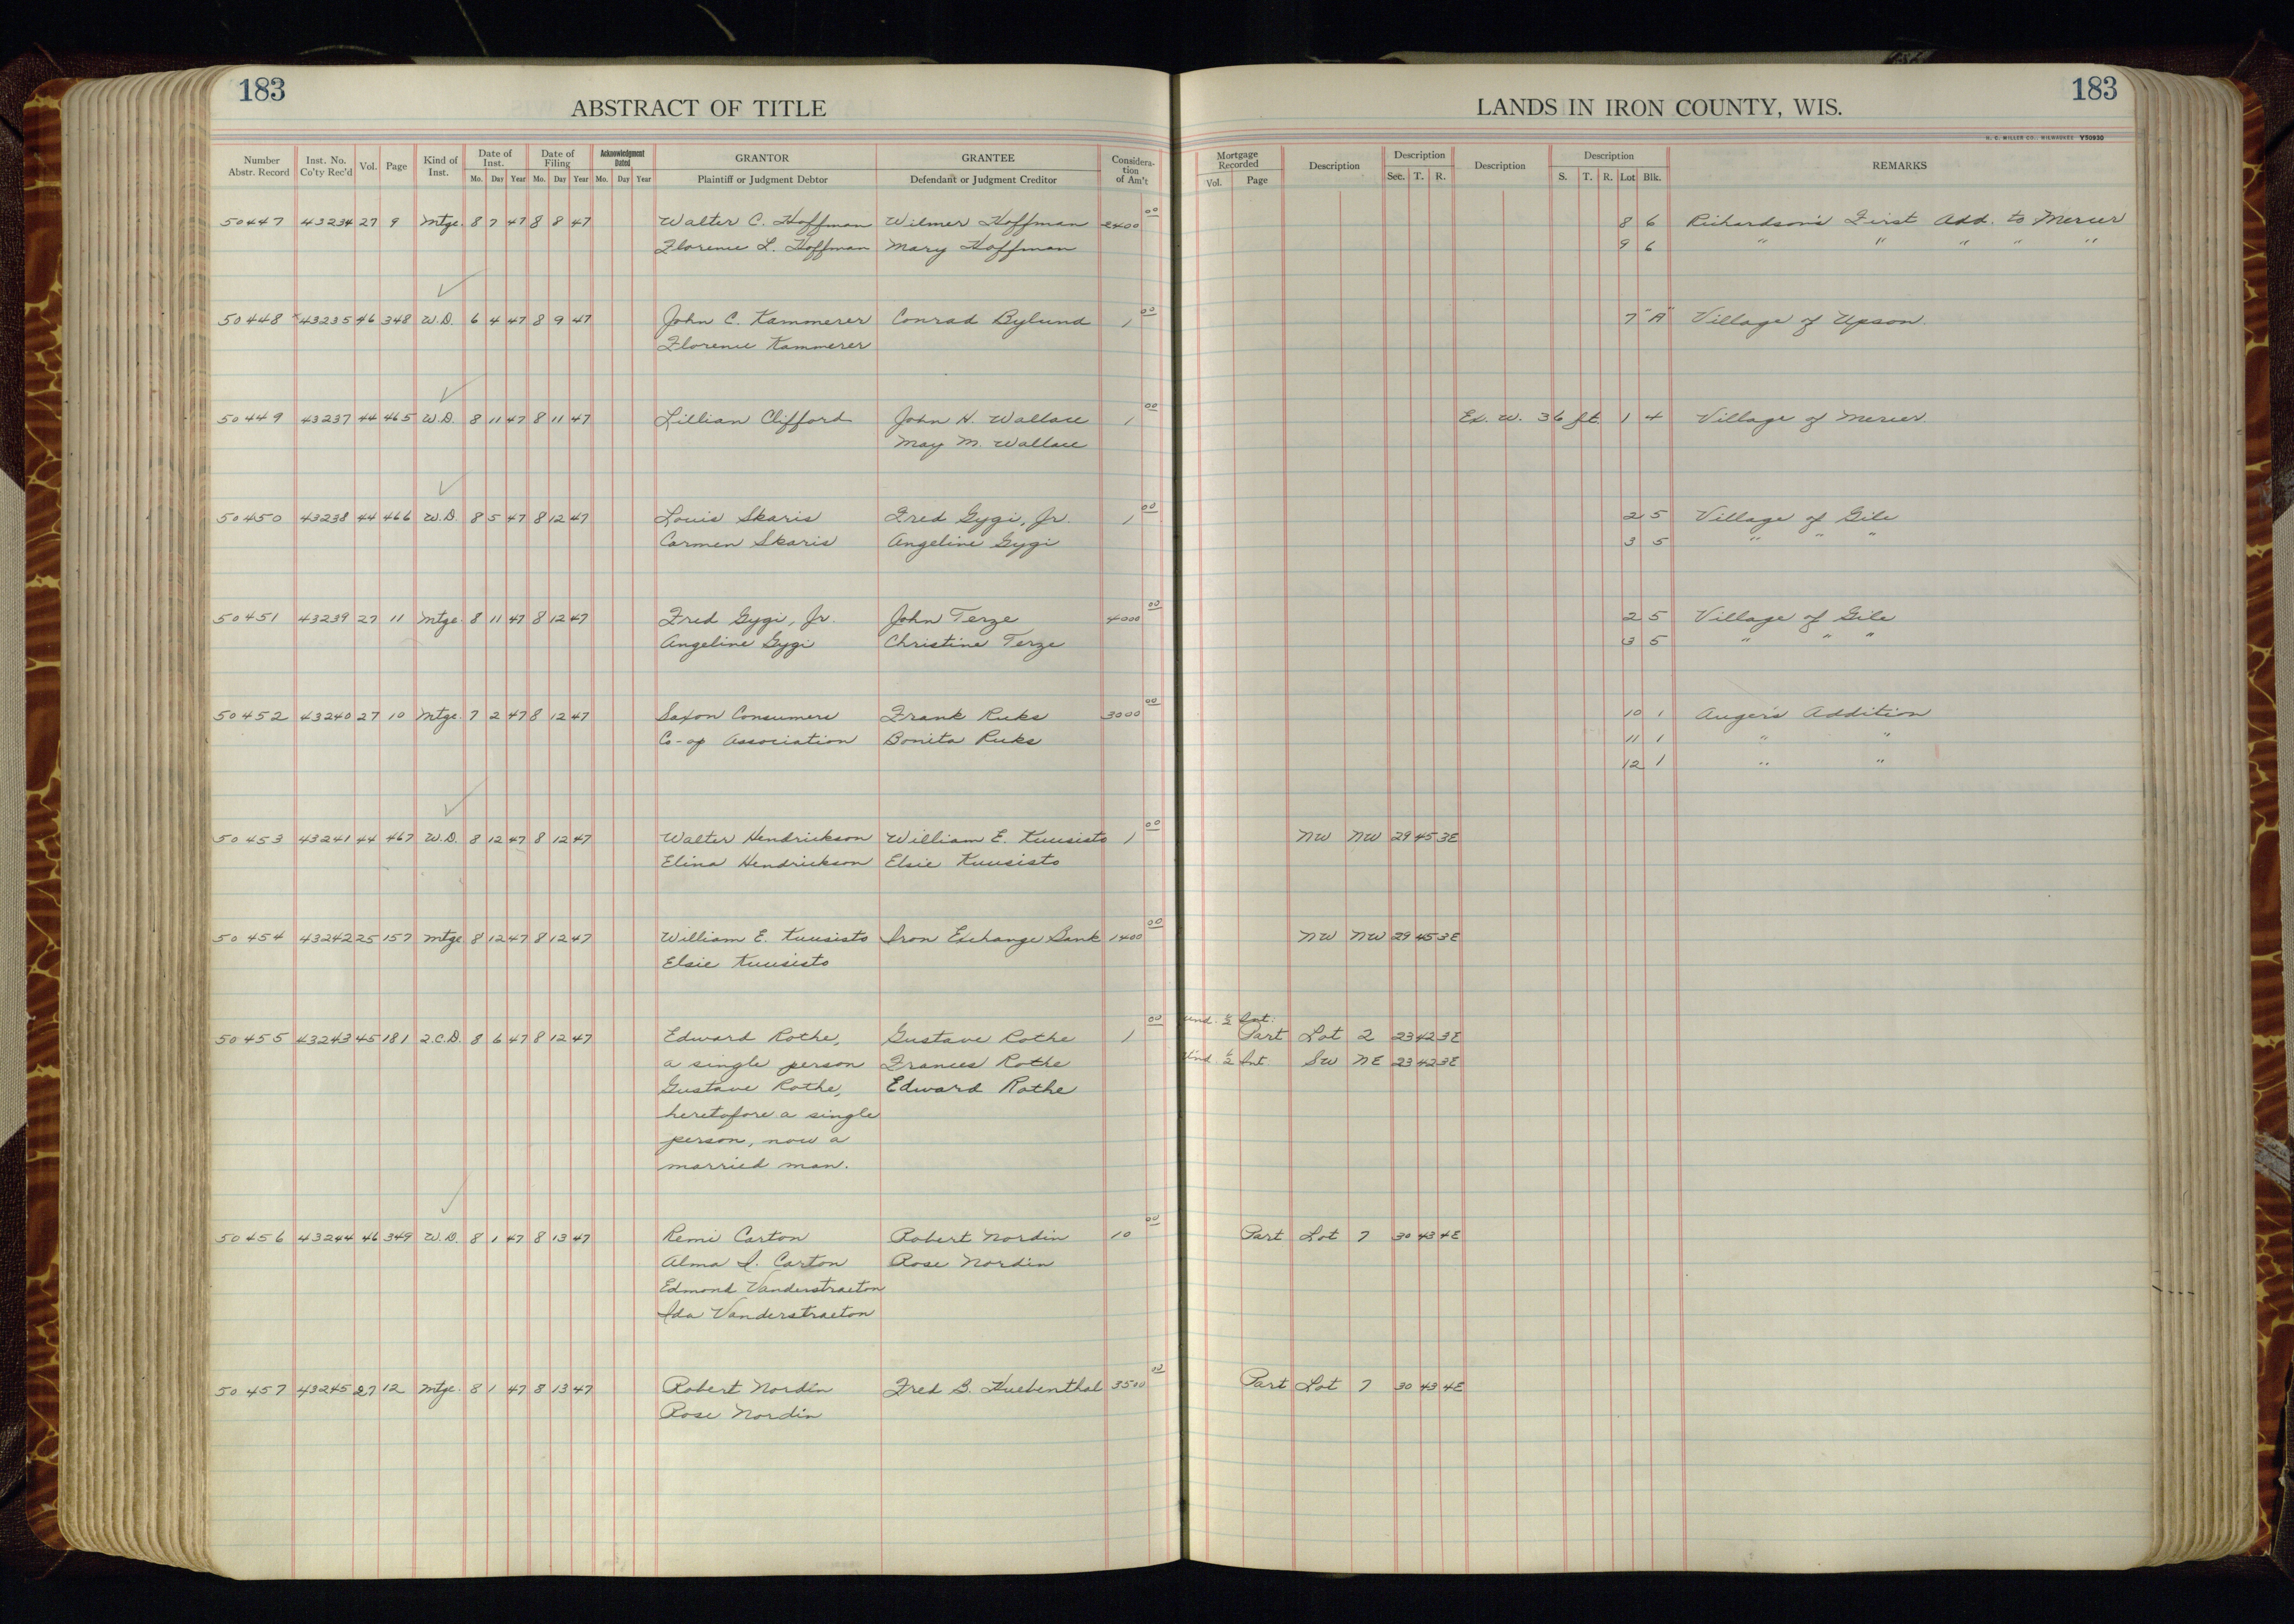 183
ABSTRACT OF TITLE
LANDS IN IRON COUNTY, WIS.
183
H. C. MILLER CO., MILWAUKEE Y50930
Number Abstr. Record Inst. No. Co'ty Rec'd Vol. Page Kind of Inst. Date of Inst. Mo. Day Year Date of Filing Mo. Day Year Acknowledgment Dated Mo. Day Year GRANTOR Plaintiff or Judgment Debtor GRANTEE Defendant or Judgment Creditor Consideration of Am't Mortgage Recorded Vol. Page Description Description Sec. T. R. Description Description S. T. R. Lot Blk. REMARKS
50447 43234 27 9 Mtge. 8 7 47 8 8 47 Walter C. Hoffman Wilmer Hoffman 2400 00 8 6 Richardson's First Add. to Mercer
Florence L. Hoffman Mary Hoffman 9 6 " " " " "
50448 43235 46 348 W.D. 6 4 47 8 9 47 John C. Kammerer Conrad Bylund 1 00 7 "A" Village of Upson.
Florence Kammerer
50449 43237 44 465 W.D. 8 11 47 8 11 47 Lillian Clifford John H. Wallace 1 00 Ex. W. 36 ft. 1 4 Village of Mercer.
May M. Wallace
50450 43238 44 466 W.D. 8 5 47 8 12 47 Louis Skaris Fred Gygi, Jr. 1 00 2 5 Village of Gile
Carmen Skaris Angeline Gygi 3 5 " " "
50451 43239 27 11 Mtge. 8 11 47 8 12 47 Fred Gygi, Jr. John Terze 4000 00 2 5 Village of Gile
Angeline Gygi Christine Terze 3 5 " " "
50452 43240 27 10 Mtge. 7 2 47 8 12 47 Saxon Consumers Frank Ruks 3000 00 10 1 Auger's Addition
Co-op Association Bonita Ruks 11 1 " "
12 1 " "
50453 43241 44 467 W.D. 8 12 47 8 12 47 Walter Hendrickson William E. Kuusisto 1 00 NW NW 29 45 3E
Elina Hendrickson Elsie Kuusisto
50454 43242 25 157 Mtge 8 12 47 8 12 47 William E. Kuusisto Iron Exchange Bank 1400 00 NW NW 29 45 3E
Elsie Kuusisto
50455 43243 45 181 2.C.D. 8 6 47 8 12 47 Edward Rothe, Gustave Rothe 1 00 und. ½ Int. Part Lot 2 23 42 3E
a single person Frances Rothe Und. ½ Int. SW NE 23 42 3E
Gustave Rothe, Edward Rothe
heretofore a single
person, now a
married man.
50456 43244 46 349 W.D. 8 1 47 8 13 47 Remi Carton Robert Nordin 10 00 Part Lot 7 30 43 4E
Alma I. Carton Rose Nordin
Edmond Vanderstraeton
Ida Vanderstraeton
50457 43245 27 12 Mtge. 8 1 47 8 13 47 Robert Nordin Fred B. Huebenthal 3500 00 Part Lot 7 30 43 4E
Rose Nordin